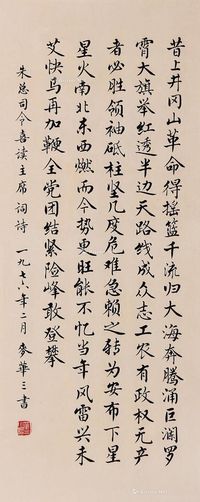 昔上井冈山革命得摇篮千流归大海奔腾涌巨澜罗
霄大旗举红透半边天路线成众志工农有政权无产
者必胜领袖砥柱坚几度危难急赖之转为安布下星
星火南北东西燃而今势更旺能不忆当年风雷兴未
艾快马再加鞭全党团结紧险峰敢登攀
朱总司令喜读主席词诗 一九七六年二月 麦华三书